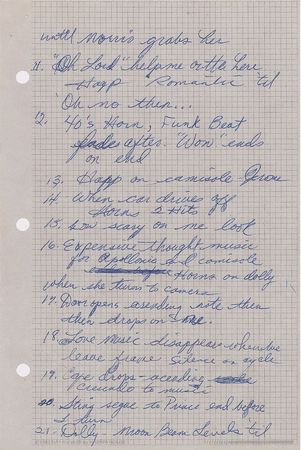 until Morris grabs her
11. "Oh Lord" help me out the here
Harp Romantic 'til
'Oh no then...
12. 40's Horn, Funk Beat
fades after. 'Won' ends
on end
13. Harp on camisole
14. When car drives off
Horns 2 Hits
15. Low scary on me look
16. Expensive thought music
for Apollonia and camisole
Horns on dolly
when she turn to camera
17. Door opens asending note then
then drops on me.
18. Love Music disappears when we
leave frame Silence on cycle
19. Cape drops - acending
Crecendo to music
20. Sting segue to Music end before
I turn
21. Dolly - Moon Beam Levels 'til